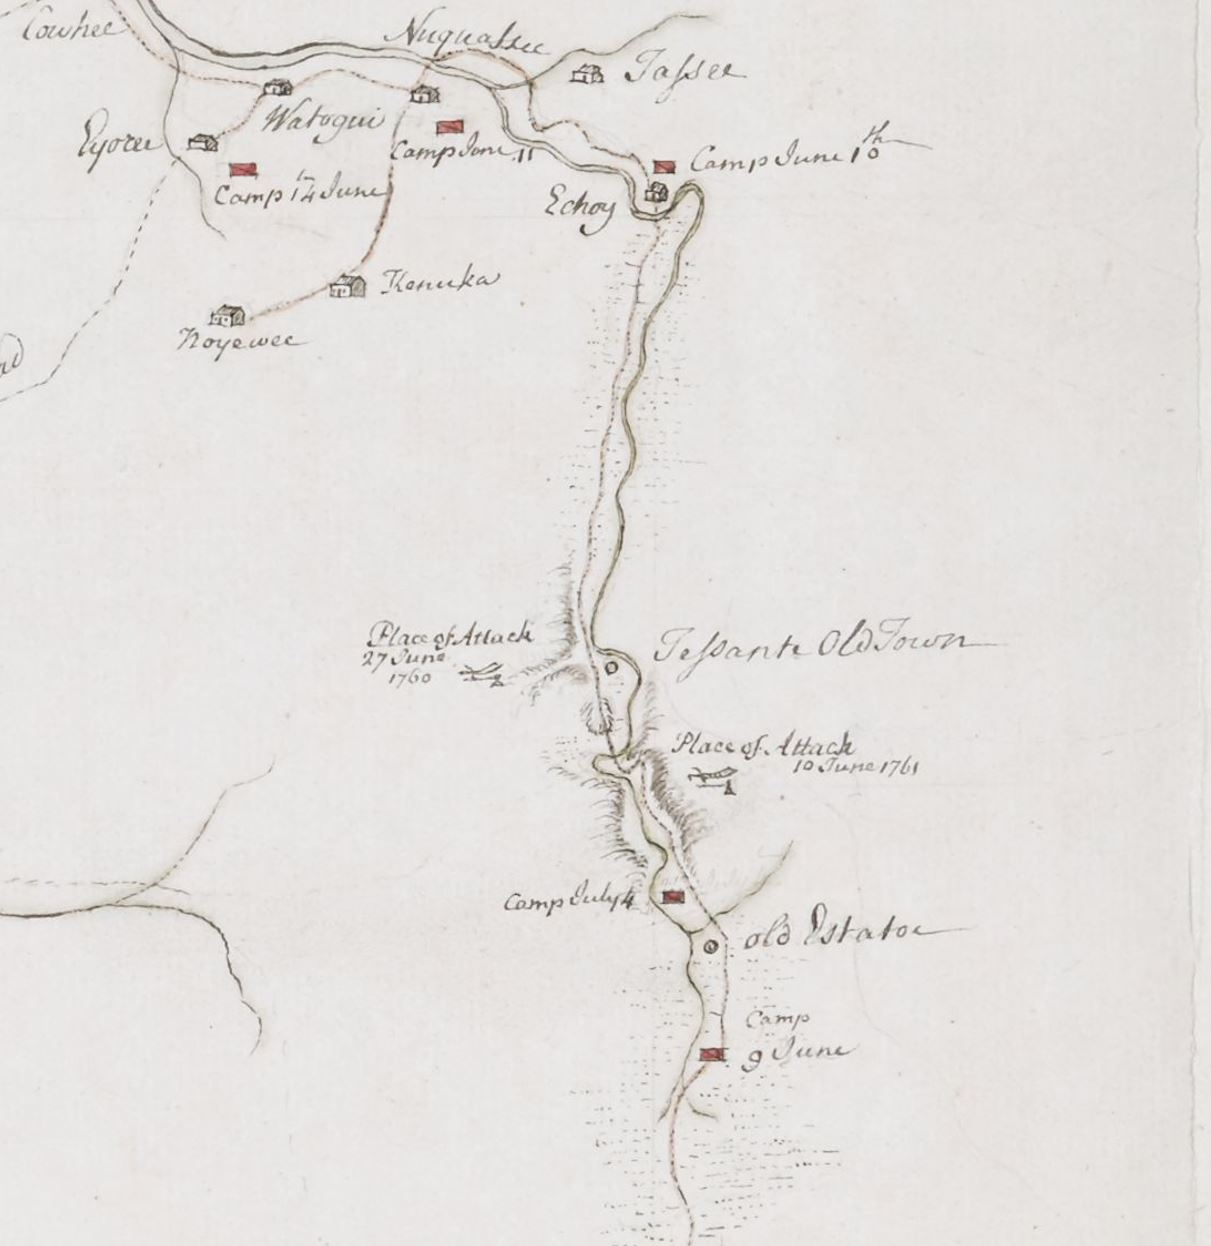 Cowhee
Nuquassee
Tassee
Watogui
Eyoree
Camp June 11
Camp June 10th
Camp 14th June
Echoy
Kenuka
Noyewee
Place of Attack
27 June
1760
Tessante Old Town
Place of Attack
10 June 1761
Camp July 4
old Estatoe
Camp
9 June